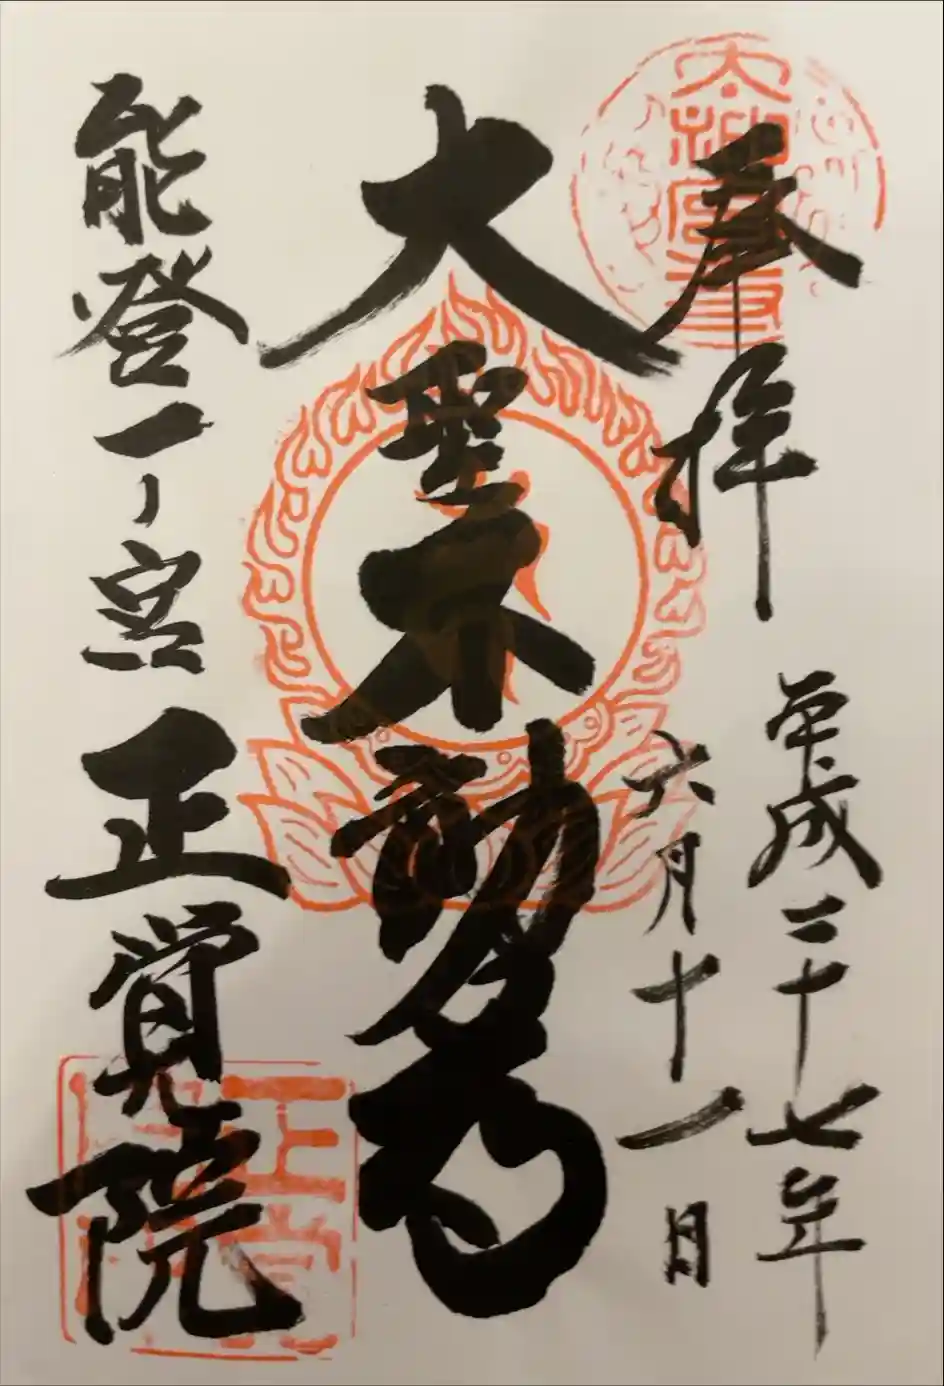 奉拝
太神宮寺
平成二十七年
六月十一日
大聖不動尊
能登一ノ宮 正覚院